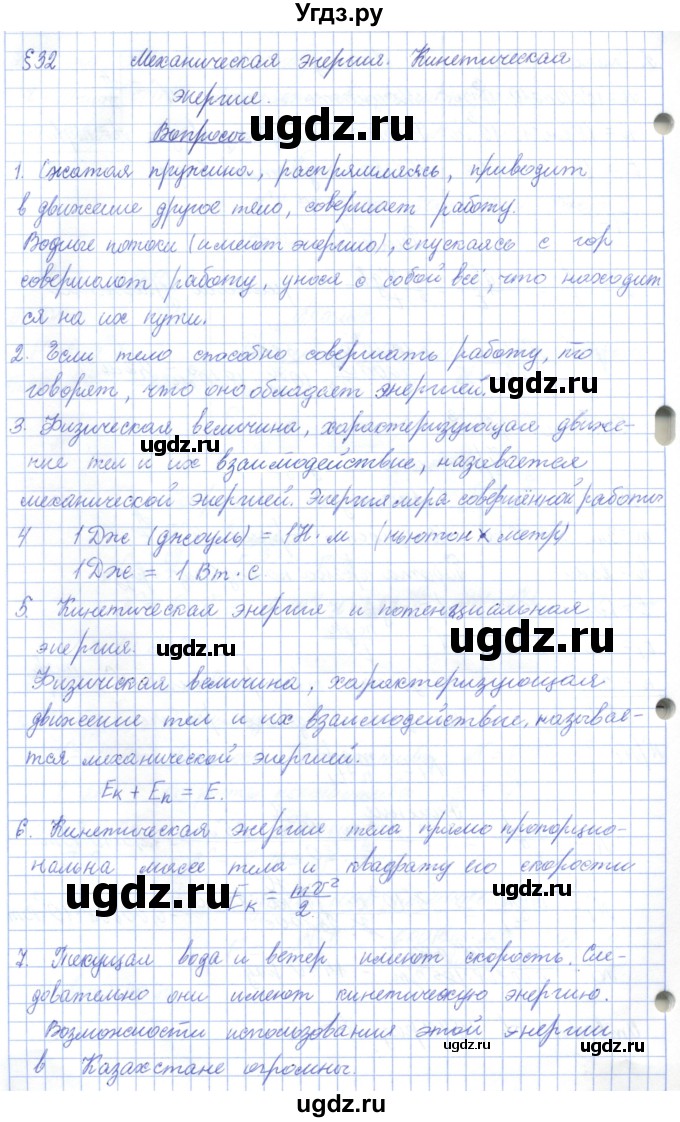 Угдз.ру
§32 Механическая энергия. Кинетическая
энергия.
Вопросы
ugdz.ru
1. Сжатая пружина, распрямляясь, приводит
в движение другое тело, совершает работу.
Водные потоки (имеют энергию), спускаясь с гор
совершают работу, унося с собой всё, что находит
ся на их пути.
2. Если тело способно совершать работу, то
говорят, что оно обладает энергией.
ugdz.ru
3. Физическая величина, характеризующая движе-
ugdz.ru
ние тел и их взаимодействие, называется
механической энергией. Энергия мера совершённой работы
4 1 Дж (джоуль) = 1Н·м (ньютон × метр)
1 Дж = 1 Вт·с
5. Кинетическая энергия и потенциальная
энергия.
ugdz.ru
ugdz.ru
Физическая величина, характеризующая
движение тел и их взаимодействие, называе-
тся механической энергией.
Eк + Eп = E.
6. Кинетическая энергия тела прямо пропорцио-
нальна массе тела и квадрату его скорости
ugdz.ru
Eк = mv²/2.
ugdz.ru
7. Текущая вода и ветер имеют скорость. Сле-
довательно они имеют кинетическую энергию.
Возможности использования этой энергии
в Казахстане огромны.
ugdz.ru
ugdz.ru